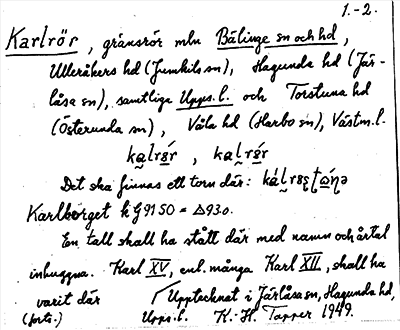 1.-2.
Karlrör, gränsrör mln Bälinge sn och hd,
Ulleråkers hd (Jumkils sn), Hagunda hd (Jär-
låsa sn), samtliga Upps. l. och Torstuna hd
(Österunda sn), Våla hd (Harbo sn), Västm. l.
Det ska finnas ett torn där:
Karlberget h G 91 50 = Δ 93.0.
En tall skall ha stått där med namn och årtal
inhuggna. Karl XV, enl. många Karl XII, skall ha
varit där
(forts.)
Upptecknat i Järlåsa sn, Hagunda hd,
Upps. l. K.-H. Tapper 1949.